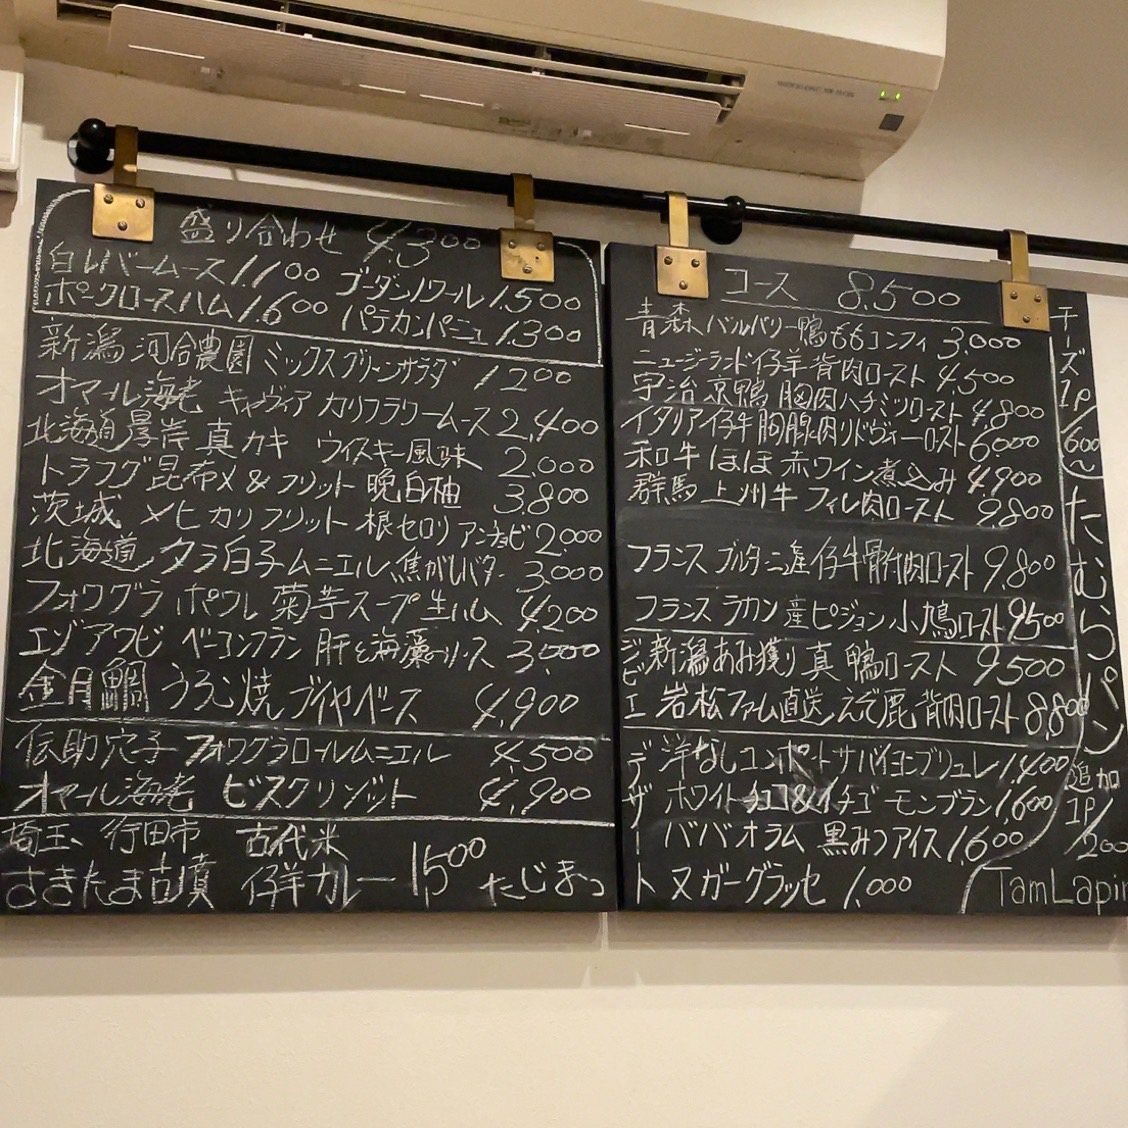 盛り合わせ 4.300
白レバームース 1.100 ブーダンノワール 1.500
ポークロースハム 1.600 パテカンパーニュ 1.300
新潟 河合農園 ミックスグリーンサラダ 1200
オマール海老 キャヴィア カリフラワームース 2,400
北海道 厚岸 真カキ ウィスキー風味 2.000
トラフグ 昆布〆 & フリット 晩白柚 3.800
茨城 メヒカリフリット 根セロリ アンチョビ 2.000
北海道 タラ白子 ムニエル 焦がしバター 3.000
フォワグラ ポワレ 菊芋スープ 生ハム 4,200
エゾアワビ ベーコンフラン 肝と海藻のソース 3.000
金目鯛 うろこ焼 ブイヤベース 4,900
伝助穴子 フォワグラロールムニエル 4,500
オマール海老 ビスクリゾット 4,900
埼玉、行田市 古代米
さきたま古墳 仔羊カレー 1500 たじまっ
コース 8.500
青森 バルバリー鴨ももコンフィ 3.000
ニュージーランド仔羊背肉ロースト 4,500
宇治 京鴨 胸肉ハチミツロースト 4,800
イタリア仔牛胸腺肉リドヴォーロースト 6.000
和牛 ほほ 赤ワイン煮込み 4,900
群馬 上州牛 フィレ肉ロースト 9,800
フランス ブルターニュ産仔牛骨付肉ロースト 9.800
フランス ラカン産ピジョン 小鳩ロースト 9500
ジビエ
新潟あみ獲り真鴨ロースト 9500
岩松ファーム直送 えぞ鹿背肉ロースト 8,800
デザート
洋なしコンポートサバイヨンブリュレ 1,400
ホワイトチョコ&イチゴ モンブラン 1,600
ババオラム 黒みつアイス 1,600
ヌガーグラッセ 1,000
チーズ 1P/600〜
たむらパン
追加 1P/200
TamLapin